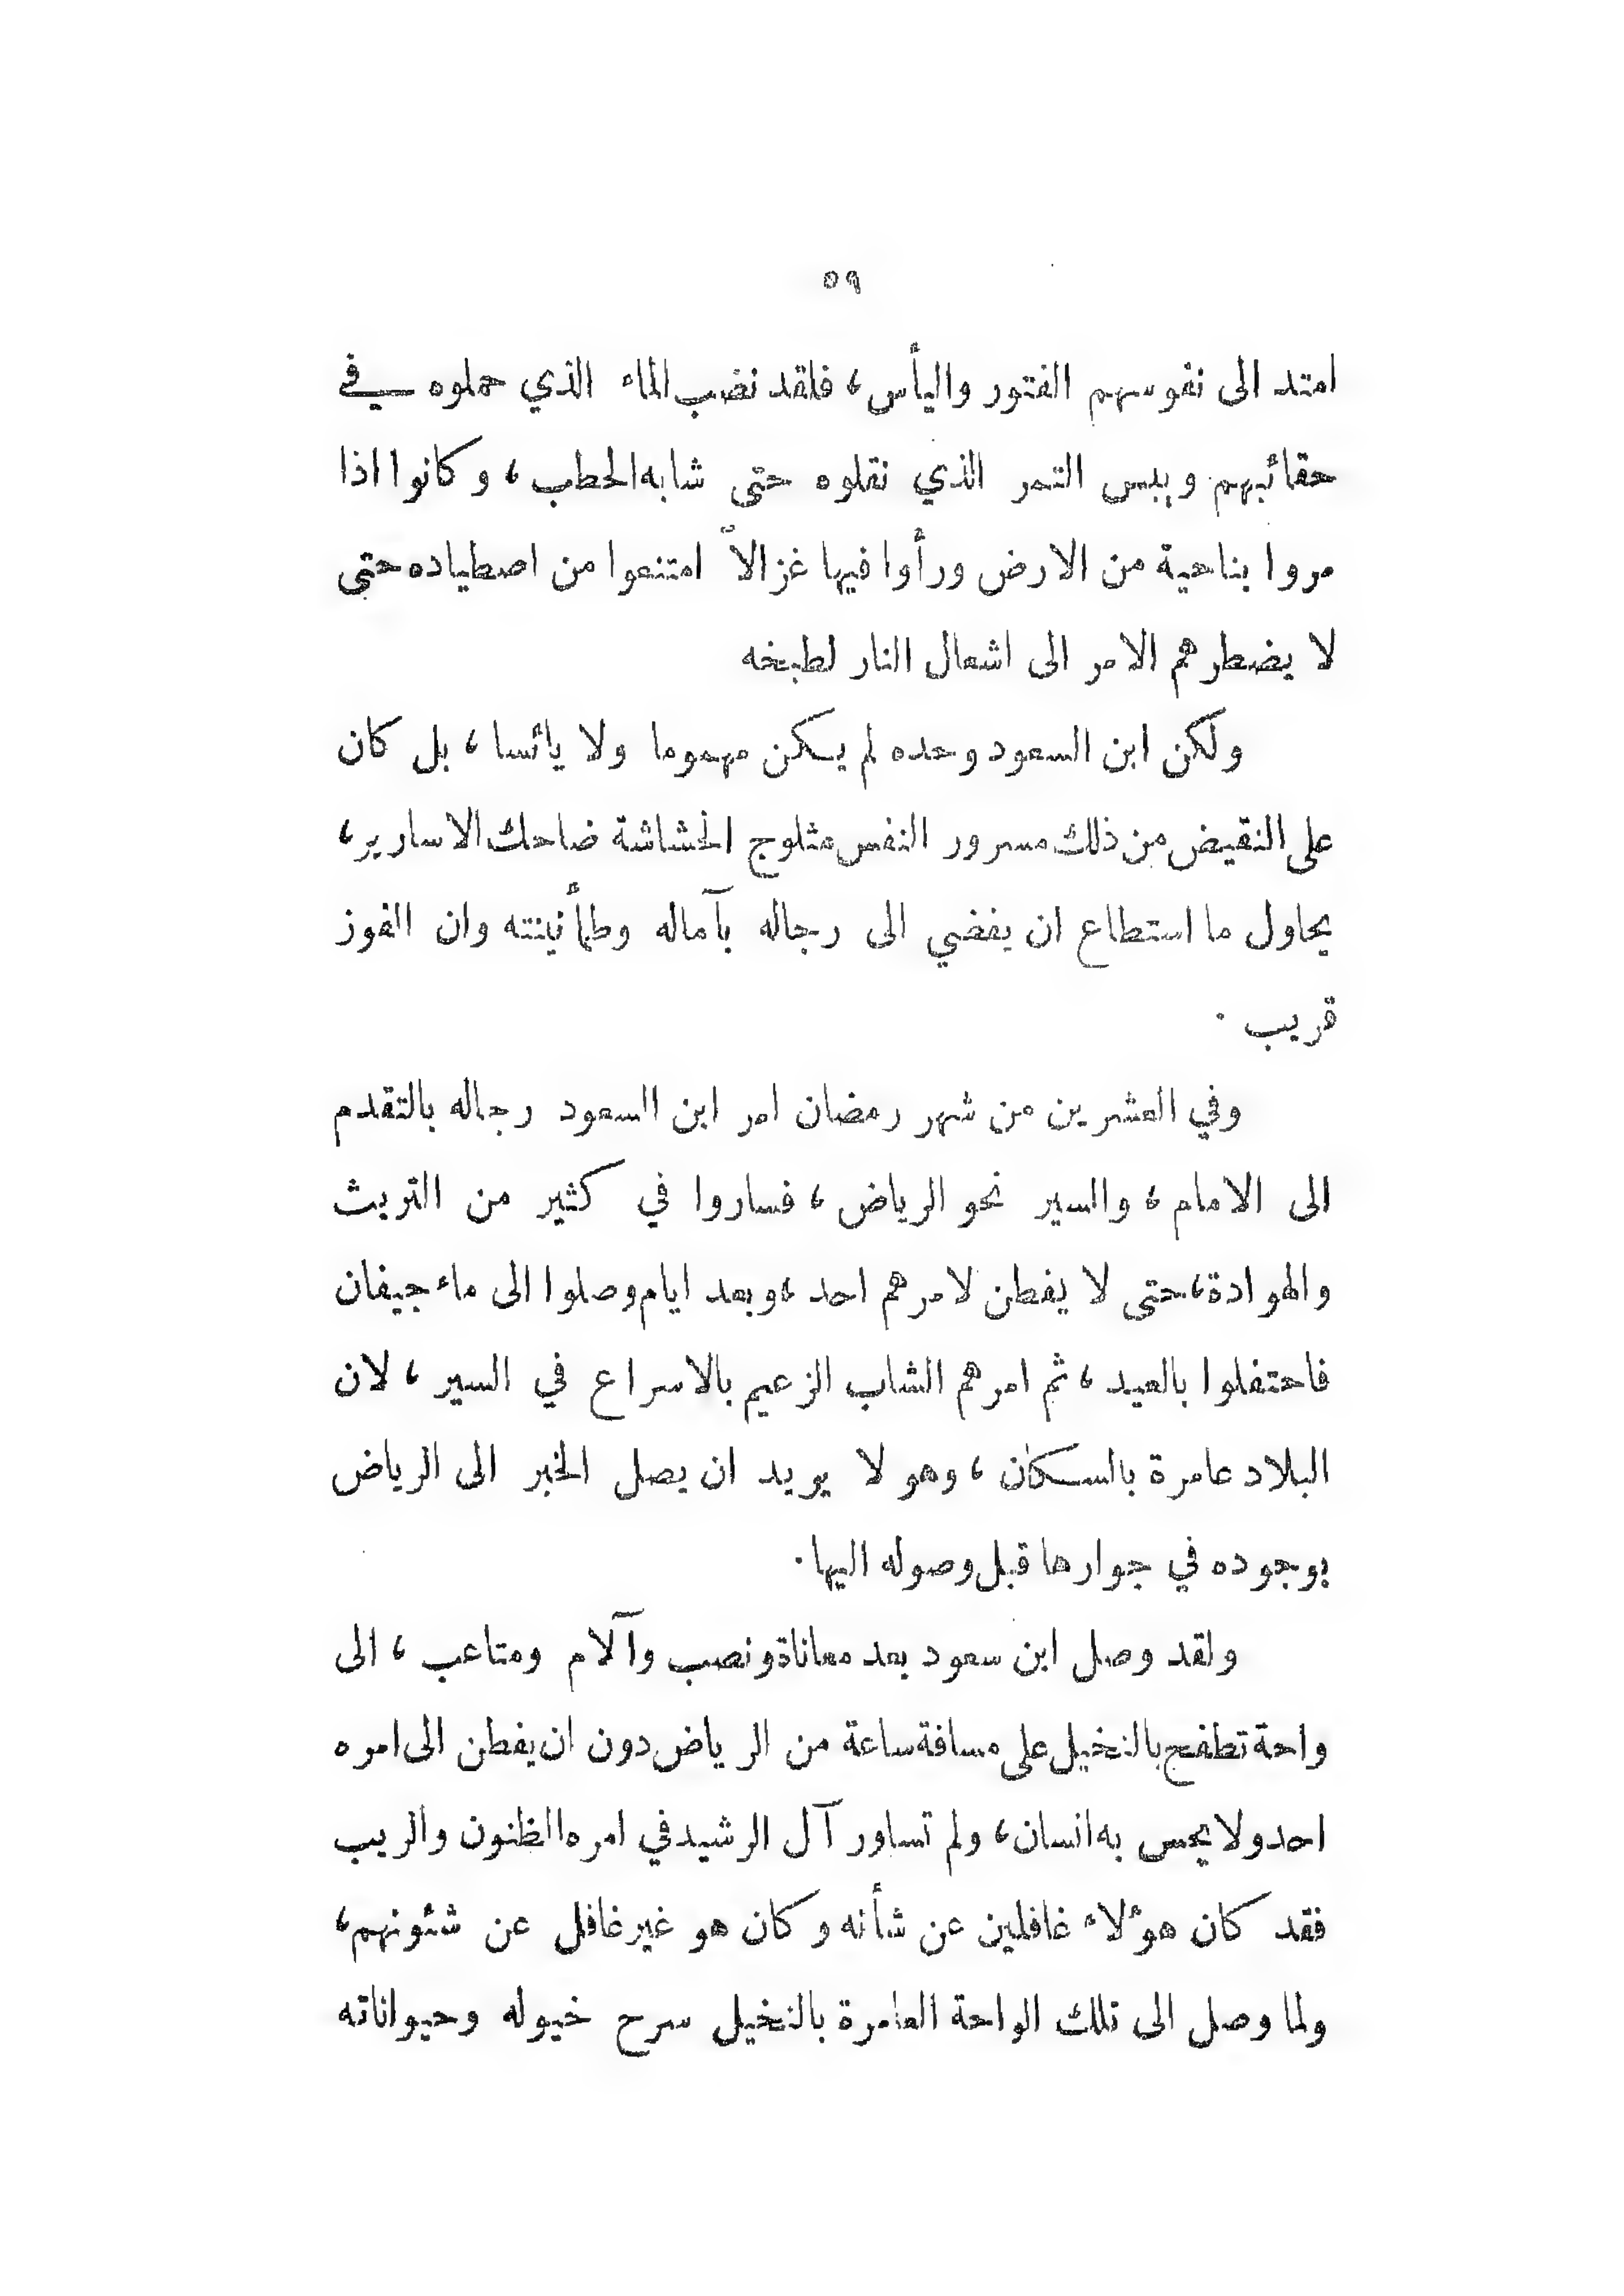 ٥٩
امتد الى نفوسهم الفتور واليأس، فلقد نضب الماء الذي حملوه في
حقائبهم ويبس التمر الذي نقلوه حتى شابه الحطب، وكانوا اذا
مروا بناحية من الارض ورأوا فيها غزالاً امتنعوا من اصطياده حتى
لا يضطرهم الامر الى اشعال النار لطبخه
ولكن ابن السعود وحده لم يكن مهموما ولا يائسا، بل كان
على النقيض من ذلك مسرور النفس مثلوج الحشاشة ضاحك الاسارير،
يحاول ما استطاع ان يفضي الى رجاله بآماله وطمأنينته وان الفوز
قريب .
وفي العشرين من شهر رمضان امر ابن السعود رجاله بالتقدم
الى الامام، والسير نحو الرياض، فساروا في كثير من التريث
والهوادة، حتى لا يفطن لامرهم احد، وبعد ايام وصلوا الى ماء جيفان
فاحتفلوا بالعيد، ثم امرهم الشاب الزعيم بالاسراع في السير، لان
البلاد عامرة بالسكان، وهو لا يريد ان يصل الخبر الى الرياض
بوجوده في جوارها قبل وصوله اليها.
ولقد وصل ابن سعود بعد معاناة ونصب وآلام ومتاعب، الى
واحة تطفح بالنخيل على مسافة ساعة من الرياض دون ان يفطن الى امره
احد ولا يحس به انسان، ولم تساور آل الرشيد في امره الظنون والريب
فقد كان هؤلاء غافلين عن شأنه وكان هو غير غافل عن شئونهم،
ولما وصل الى تلك الواحة العامرة بالنخيل سرح خيوله وحيواناته